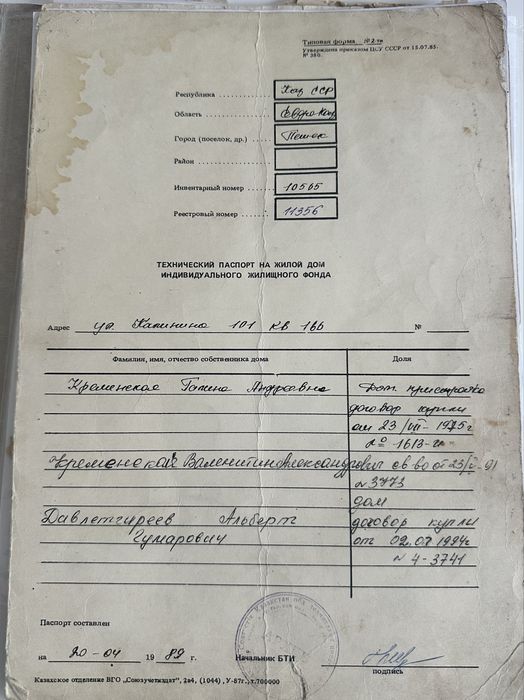 Типовая форма №2-тн
Утверждена приказом ЦСУ СССР от 15.07.85.
№ 380.
Республика Каз ССР
Область
Город (поселок, др.)
Район
Инвентарный номер 10565
Реестровый номер 11356
ТЕХНИЧЕСКИЙ ПАСПОРТ НА ЖИЛОЙ ДОМ
ИНДИВИДУАЛЬНОГО ЖИЛИЩНОГО ФОНДА
Адрес ул Калинина 101 кв 166 №
Фамилия, имя, отчество собственника дома Доля
Кременская Галина Андреевна
договор купли
от 23/VII-1975г
№ 1613
Кременской Валентин Александрович св во от 23/ 91
№ 3773
дом
Давлетгиреев Альберт договор купли
Гумарович от 02.07.1994г
№ 4-3741
Паспорт составлен
на 20-04 1989 г. Начальник БТИ
подпись
Казахское отделение ВГО „Союзучетиздат", 2в4, (1044) , У-87г.,т.700000